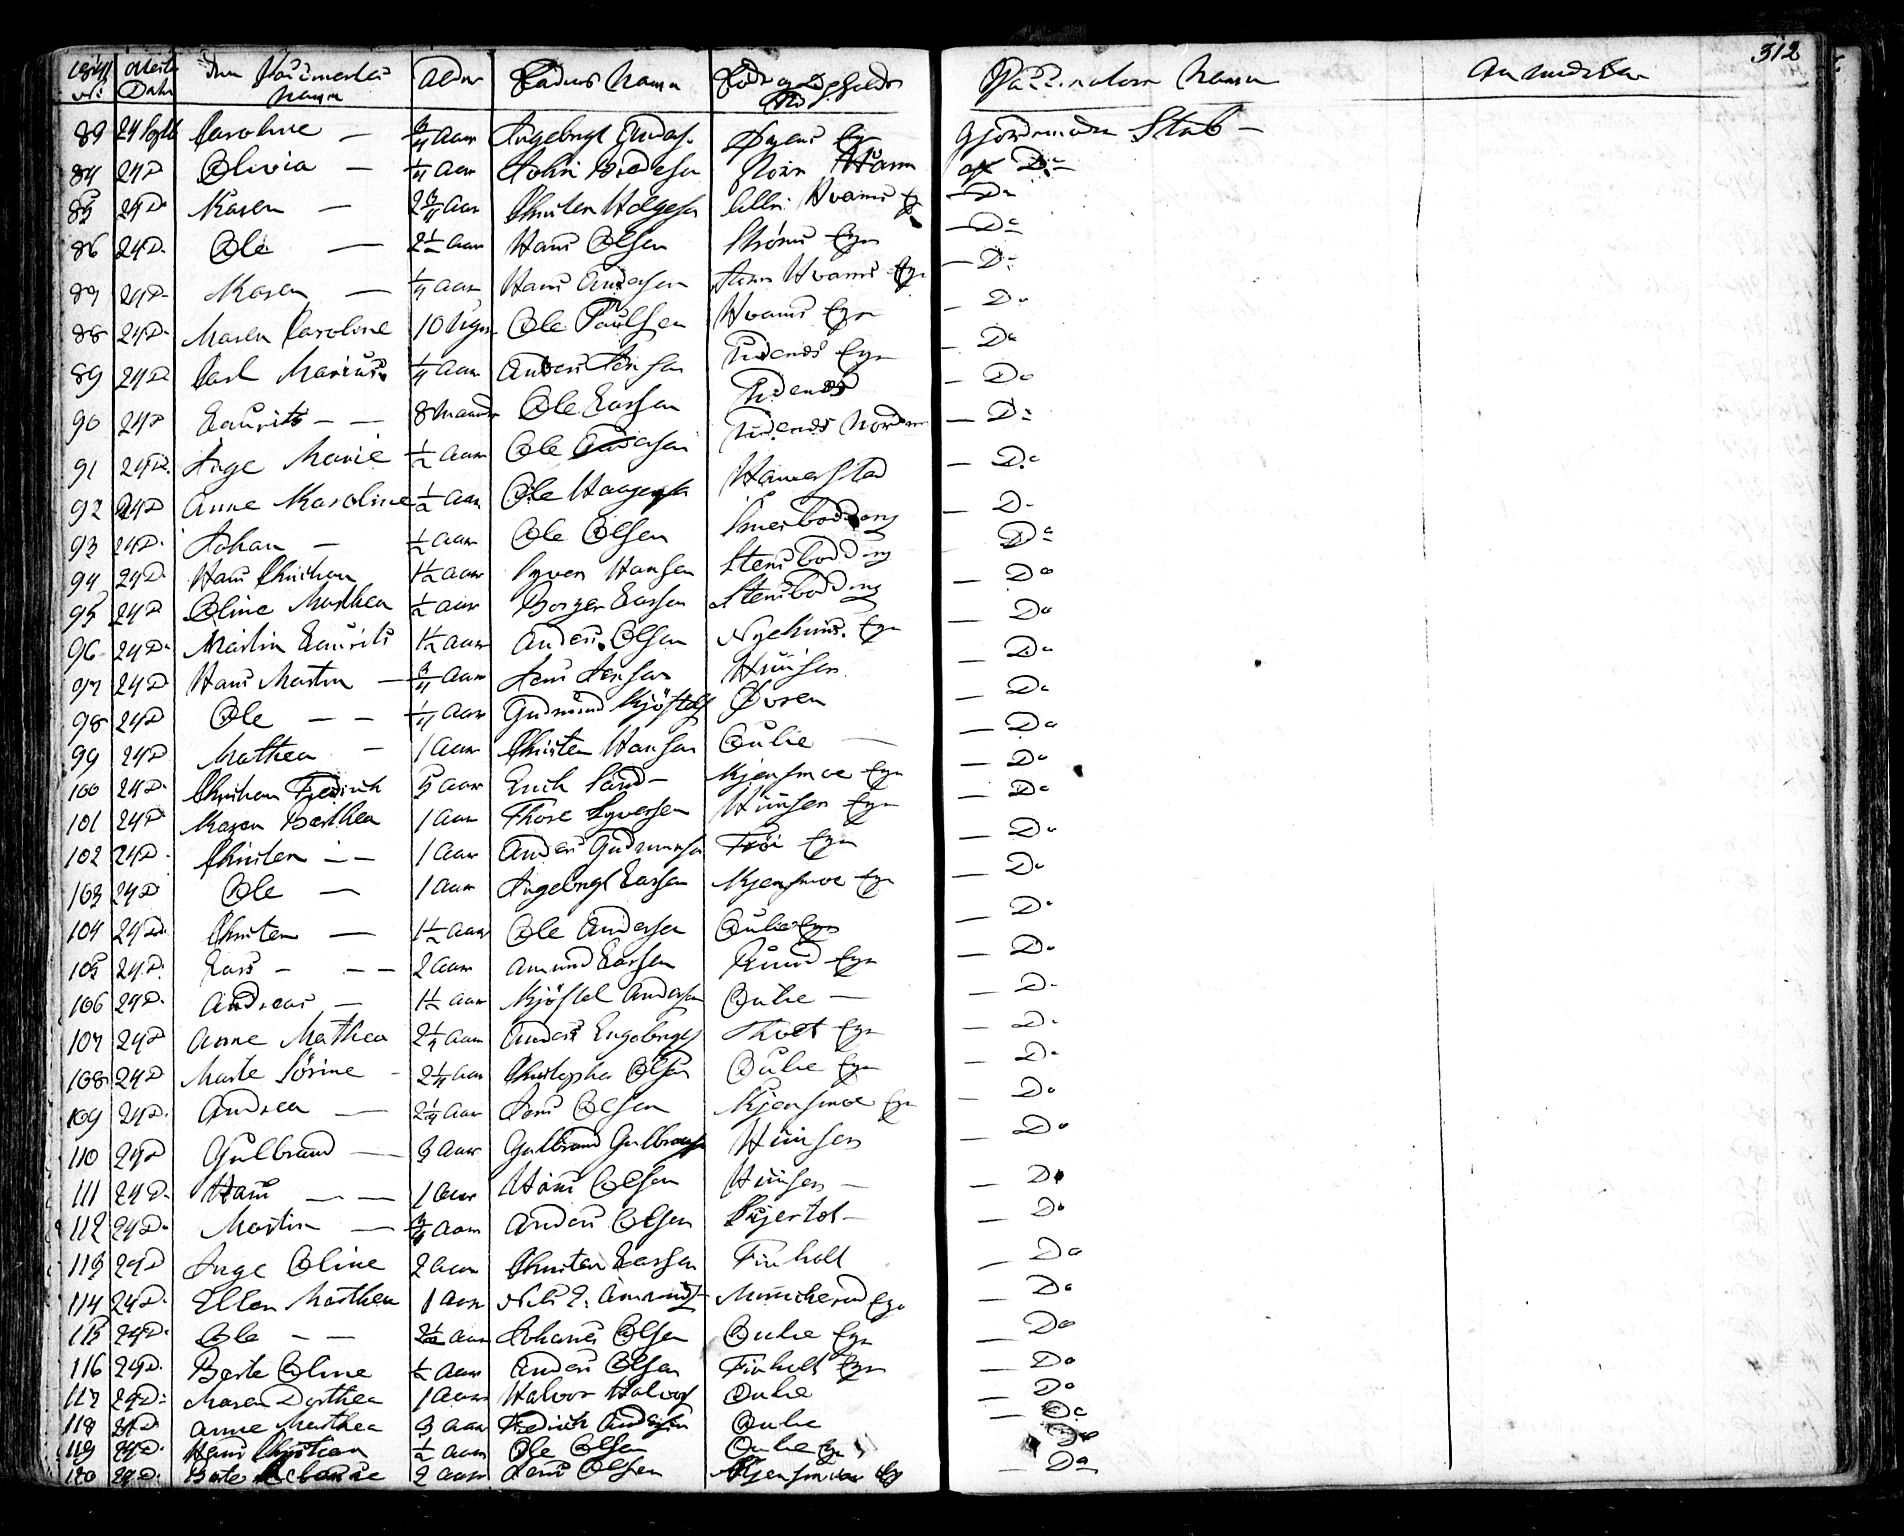 1841 Den Vacineredes Alder Faders Navn Føde og Opholds Vaccinators Navn Anmærkn 312
No Dato Navn Sted
83 24 Septb Caroline — 3/4 Aar Ingebregt Anders. Eye Gjordemoder Stub —
84 24 D Olivia — 1/4 Aar Hvam af Do
85 24 Do Karen — 2 3/4 Aar Christen Helgesen Hvams Ey — Do
86 24 D. Ole — 2 1/2 Aar Hans Olsen Strøms Eye — Do
87 24 D. Maren — 1/4 Aar Hans Andersen Hvams Eye — Do
88 24 D. Maren Caroline 10 Uger Ole Paulsen Hvams Eye — Do
89 24 D Carl Marius 1/4 Aar Anders Jensen Udenes Eye — Do
90 24 D Laurits — — 8 Maaneder Ole Larsen Udenes — Do
91 24 D. Inge Marie 1/2 Aar Ole Andersen Udenes Nordre — Do
92 24 D Anne Karoline 1/2 Aar Ole Haagensen Hammerstad — Do
93 24 D. Johan — 1/2 Aar Ole Olsen — Do
94 24 D. Hans Christian 1 1/2 Aar Syver Hansen — Do
95 24 D Oline Marthea 1/2 Aar Borger Larsen — Do
96 24 Do Martin Laurits 1 1/2 Aar Anders Olsen Nyehuus. Eye — Do
97 24 D Hans Martin — 3/4 Aar Jens Jensen Huuser — Do
98 24 D Ole — — 1/4 Aar Gudmund Kjøstels Øvren — Do
99 24 D Mathea — 1 Aar Christen Hansen Oulie — — Do
100 24 D. Christian Fredrich 5 Aar Erich Sand — Kjensmoe Eye — Do
101 24 D Maren Berthea 1 Aar Thore Syversen Huuser Eye — Do
102 24 D. Christen — — 1 Aar Anders Gudmunsen Eye — Do
103 24 D Ole — 1 Aar Ingebregt Larsen Kjensmoe Eye — Do
104 24 D. Christen — 1 1/2 Aar Ole Andersen Oulie Eye — Do
105 24 D. Lars — — — 2 Aar Amund Larsen Ruud Eye — Do
106 24 D. Andreas — 1 1/2 Aar Kjøstel Andersen Oulie — — Do
107 24 D Anne Mathea 2 1/4 Aar Anders Engebregts Thvet Eye — Do
108 24 D Marte Sørine — 2 1/4 Aar Christopher Olsen Oulie Eye — Do
109 24 D. Andrea — 2 1/4 Aar Jens Olsen Kjensmoe Eye — Do
110 24 D Gulbrand — 3 Aar Gulbrand Gulbrandsen Huuser — Do
111 24 D. Hans — — 1 Aar Hans Olsen Huuser — — Do
112 24 D. Martin — 3/4 Aar Anders Olsen — Do
113 24 D Inge Oline 2 Aar Christen Larsen Finholt — Do
114 24 D. Ellen Marthea 1 Aar Nels E. Amunds Munckerud Eye — Do
115 24 D. Ole — — 2 1/2 Aar Johanes Olsen Oulie Eye — Do
116 24 D. Berte Oline 1/2 Aar Anders Olsen Finholt Eye — Do
117 24 D. Maren Dorthea 1 Aar Halvor Halvors Oulie — Do
118 24 D. Anne Marthea 3 Aar Fredrich Andersen Oulie — Do
119 24 D. Hans Christian 1/2 Aar Ole Olsen Oulie Eye Do
120 24 D. 2 Aar Jens Olsen Kjensmoe Ey — Do